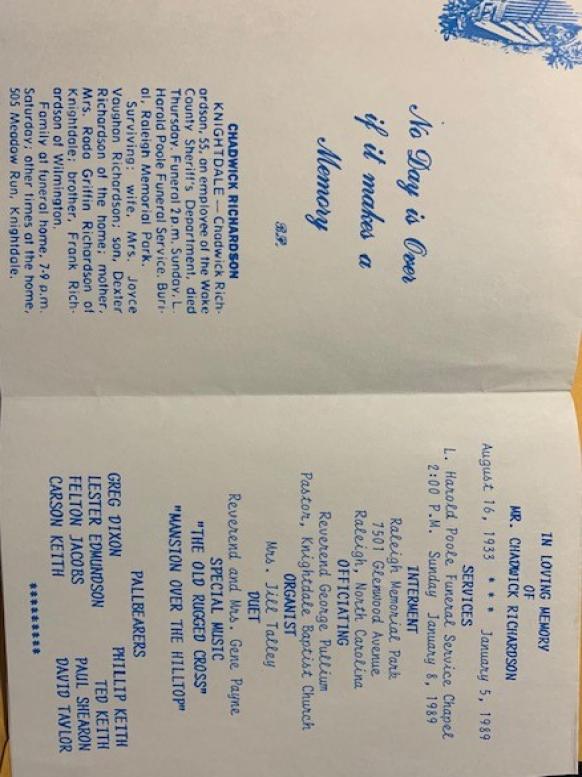 No Day is Over
if it makes a
Memory
B.P.
CHADWICK RICHARDSON
KNIGHTDALE — Chadwick Rich-
ardson, 55, an employee of the Wake
County Sheriff's Department, died
Thursday. Funeral 2 p.m. Sunday, L.
Harold Poole Funeral Service. Buri-
al, Raleigh Memorial Park.
Surviving: wife, Mrs. Joyce
Vaughan Richardson; son, Dexter
Richardson of the home; mother,
Mrs. Rada Griffin Richardson of
Knightdale; brother, Frank Rich-
ardson of Wilmington.
Family at funeral home, 7-9 p.m.
Saturday; other times at the home,
505 Meadow Run, Knightdale.
IN LOVING MEMORY
OF
MR. CHADWICK RICHARDSON
August 16, 1933 * * * January 5, 1989
SERVICES
L. Harold Poole Funeral Service Chapel
2:00 P.M. Sunday January 8, 1989
INTERMENT
Raleigh Memorial Park
7501 Glenwood Avenue
Raleigh, North Carolina
OFFICIATING
Reverend George Pullium
Pastor, Knightdale Baptist Church
ORGANIST
Mrs. Jill Talley
DUET
Reverend and Mrs. Gene Payne
SPECIAL MUSIC
"THE OLD RUGGED CROSS"
"MANSION OVER THE HILLTOP"
PALLBEARERS
GREG DIXON PHILLIP KEITH
LESTER EDMUNDSON TED KEITH
FELTON JACOBS PAUL SHEARON
CARSON KEITH DAVID TAYLOR
*********